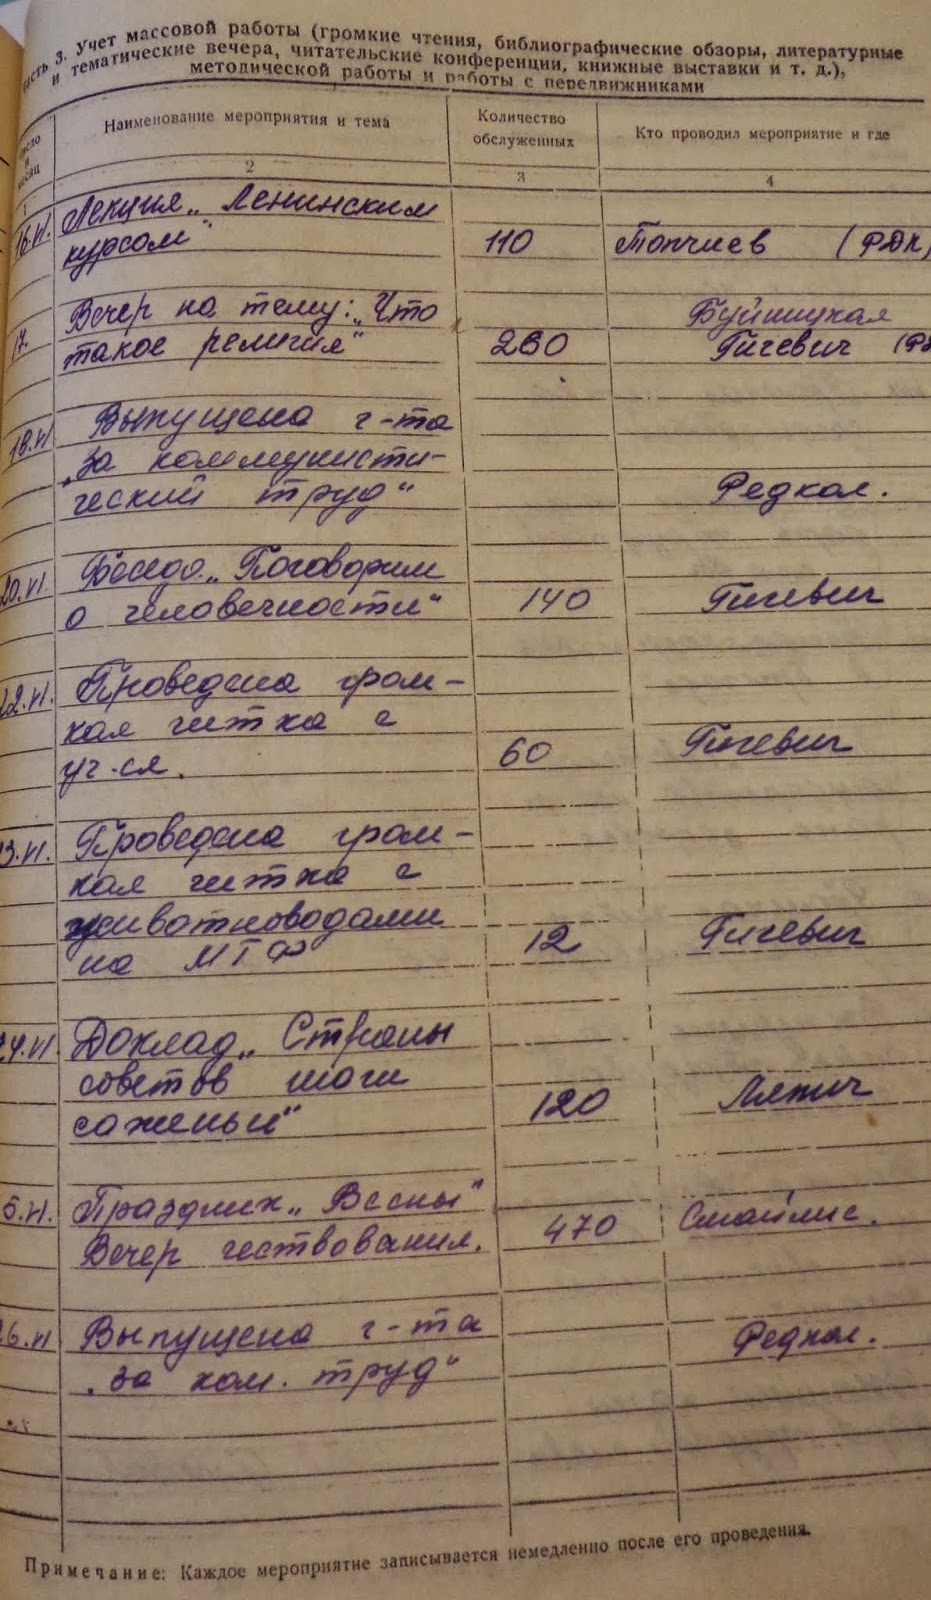 часть 3. Учет массовой работы (громкие чтения, библиографические обзоры, литературные
и тематические вечера, читательские конференции, книжные выставки и т. д.),
методической работы и работы с передвижниками
Число и месяц
Наименование мероприятия и тема
Количество обслуженных
Кто проводил мероприятие и где
1 2 3 4
16.VI. Лекция „Ленинским
курсом" 110 Топчиев (РДК)
Вечер на тему: „Что Буйницкая
17. такое религия" 260 Гигевич
18.VI Выпущена г-та
„За коммунисти-
ческий труд" Редкол.
20.VI. Беседа „Поговорим
о человечности" 140 Гигевич
22.VI. Проведена гром-
кая читка с
уч-ся. 60 Гигевич
3.VI. Проведена гром-
кая читка с
животноводами
на МТФ 12 Гигевич
24.VI. Доклад „Страны
советов шаги
саженьи" 120
5.VI. Праздник „Весны"
Вечер чествования. 470 Смайлис.
26.VI Выпущена г-та
„За ком. труд" Редкол.
Примечание: Каждое мероприятие записывается немедленно после его проведения.